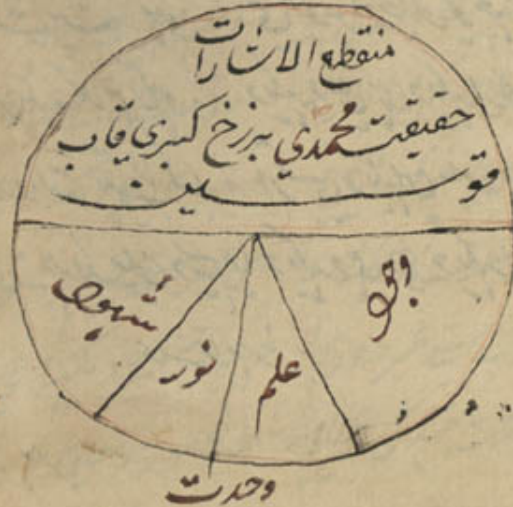 منقطع الاشارات
حقيقت محمدي برزخ كبري قاب
قوسين
وجود
علم
نور
شهود
وحدت